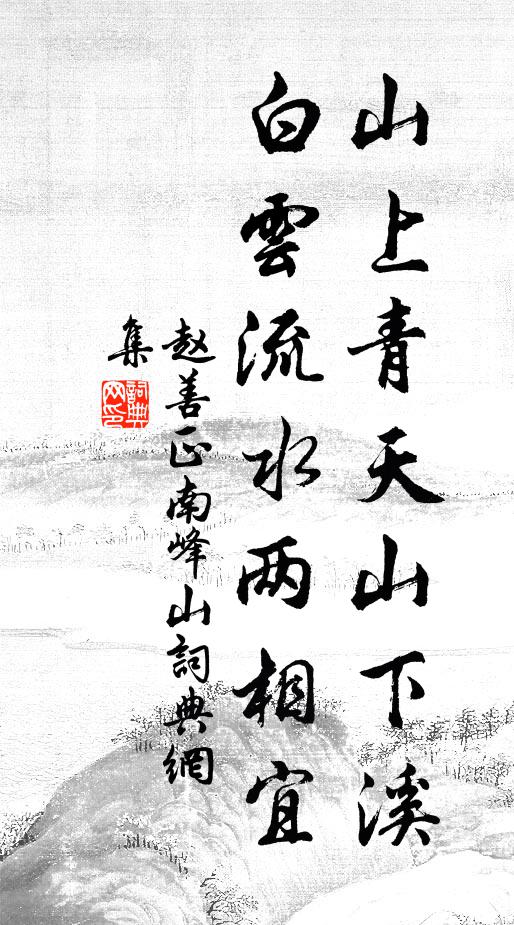 山上青天山下溪
白雲流水两相宜
赵善正南峰山詞典網
集
詞典网印